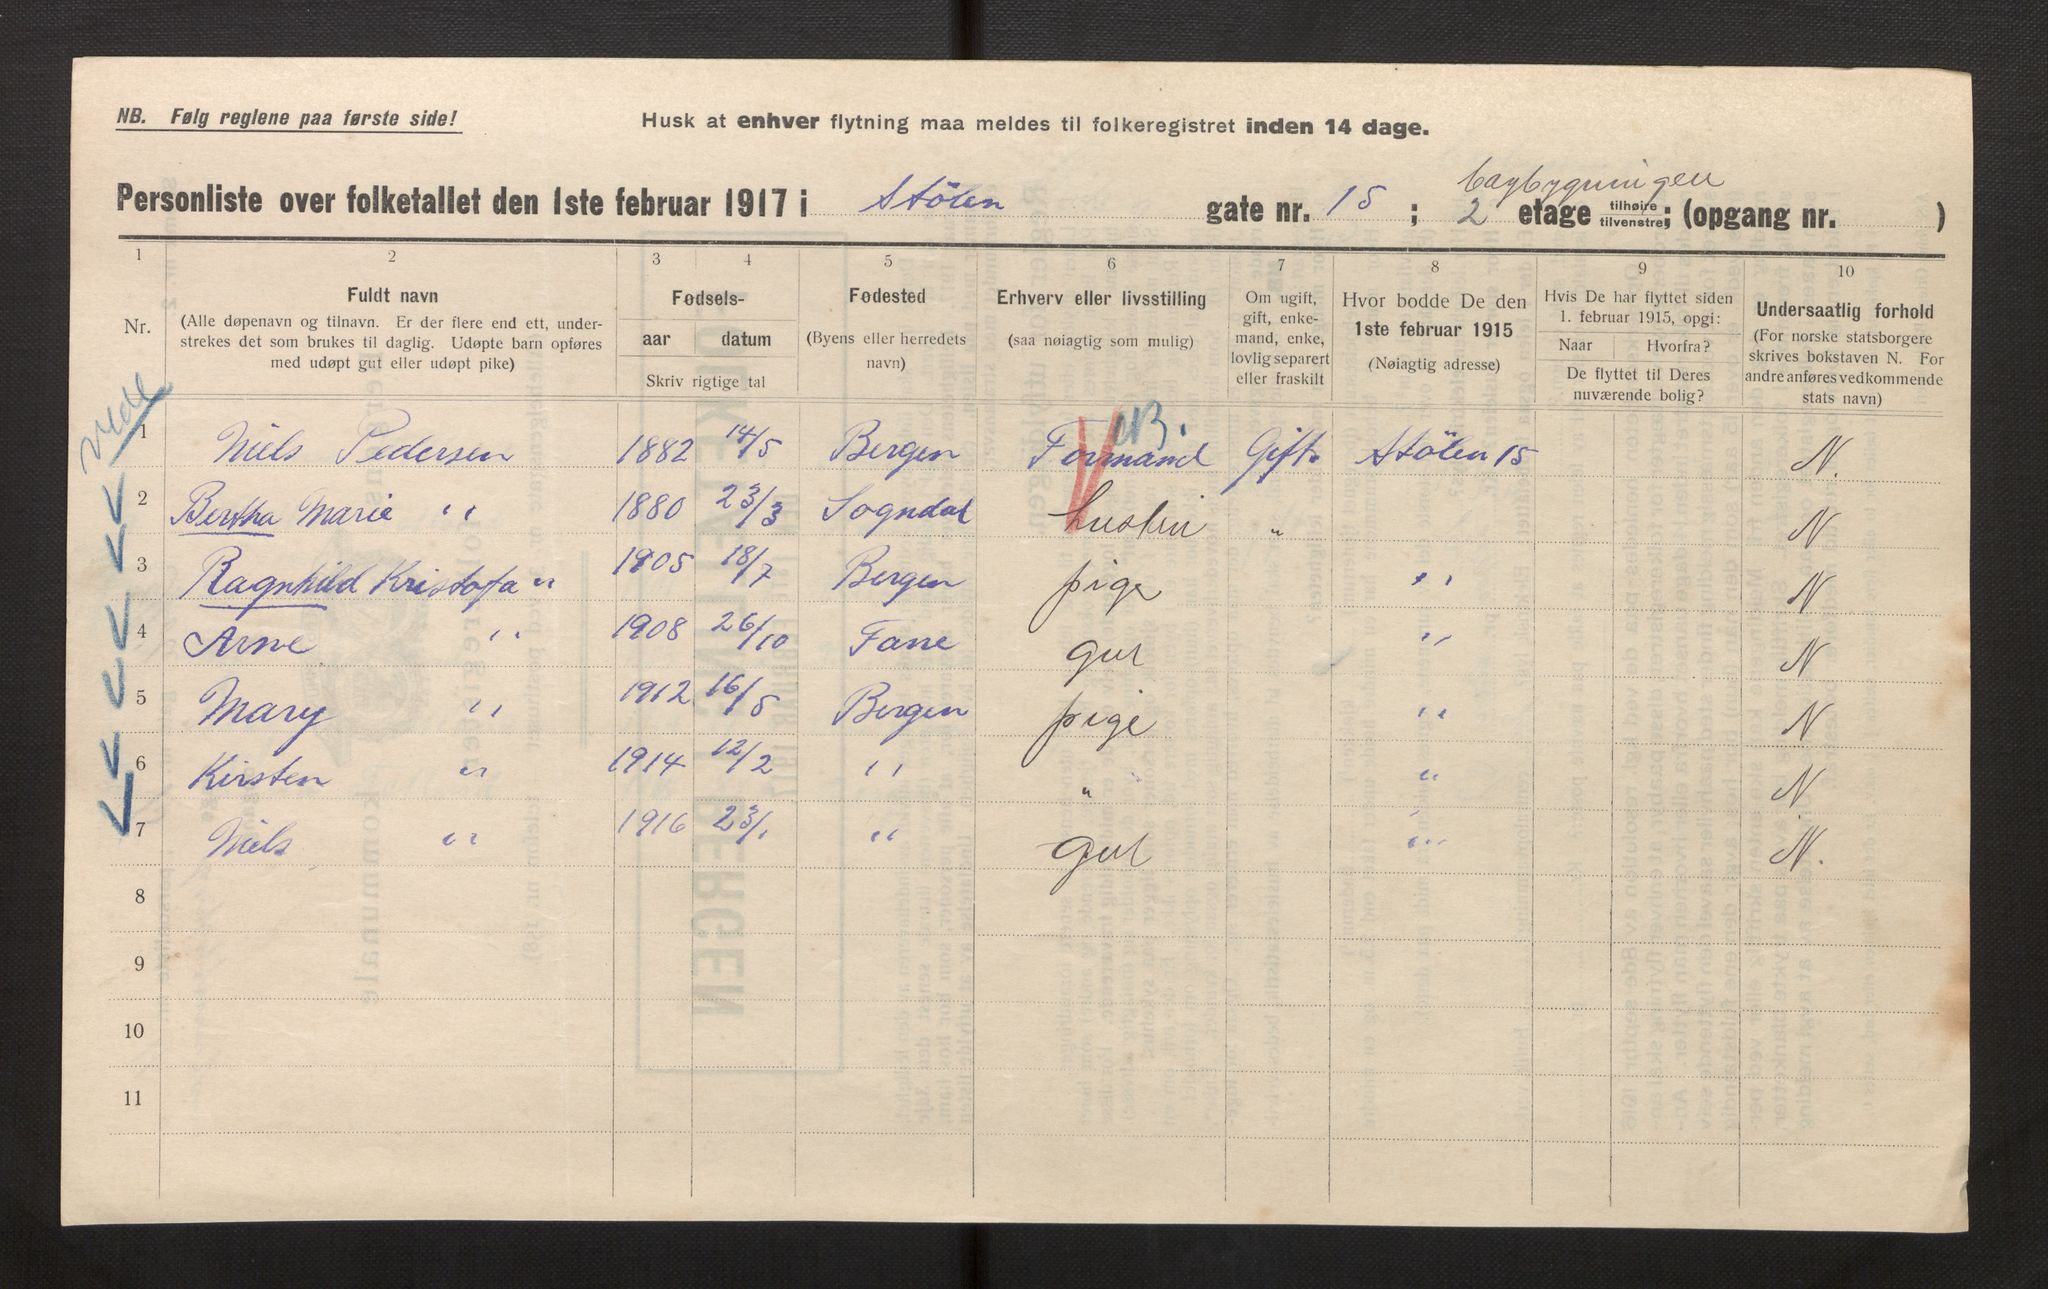 NB. Følg reglene paa første side!
Husk at enhver flytning maa meldes til folkeregistret inden 14 dage.
Personliste over folketallet den 1ste februar 1917 i Stölen gate nr. 15 ; 2 etage tilhøire tilvenstre; (opgang nr. )
bagbygningen
1 2 3 4 5 6 7 8 9 10
Nr.
Fuldt navn
(Alle døpenavn og tilnavn. Er der flere end ett, under-
strekes det som brukes til daglig. Udøpte barn opføres
med udøpt gut eller udøpt pike)
Fødsels-
aar datum
Skriv rigtige tal
Fødested
(Byens eller herredets
navn)
Erhverv eller livsstilling
(saa nøiagtig som mulig)
Om ugift,
gift, enke-
mand, enke,
lovlig separert
eller fraskilt
Hvor bodde De den
1ste februar 1915
(Nøiagtig adresse)
Hvis De har flyttet siden
1. februar 1915, opgi:
Naar Hvorfra?
De flyttet til Deres
nuværende bolig?
Undersaatlig forhold
(For norske statsborgere
skrives bokstaven N. For
andre anføres vedkommende
stats navn)
NB.
1 Niels Pedersen 1882 14/5 Bergen Formand Gift. Stölen 15 N.
2 Bertha Marie " 1880 23/3 Sogndal hustru " N
3 Ragnhild Kristofa " 1905 18/7 Bergen pige " N
4 Arne " 1908 26/10 Fane gut " N
5 Mary " 1912 16/5 Bergen pige " N
6 Kirsten " 1914 12/2 " " " N
7 Niels " 1916 23/1 " gut " N.
8
9
10
11